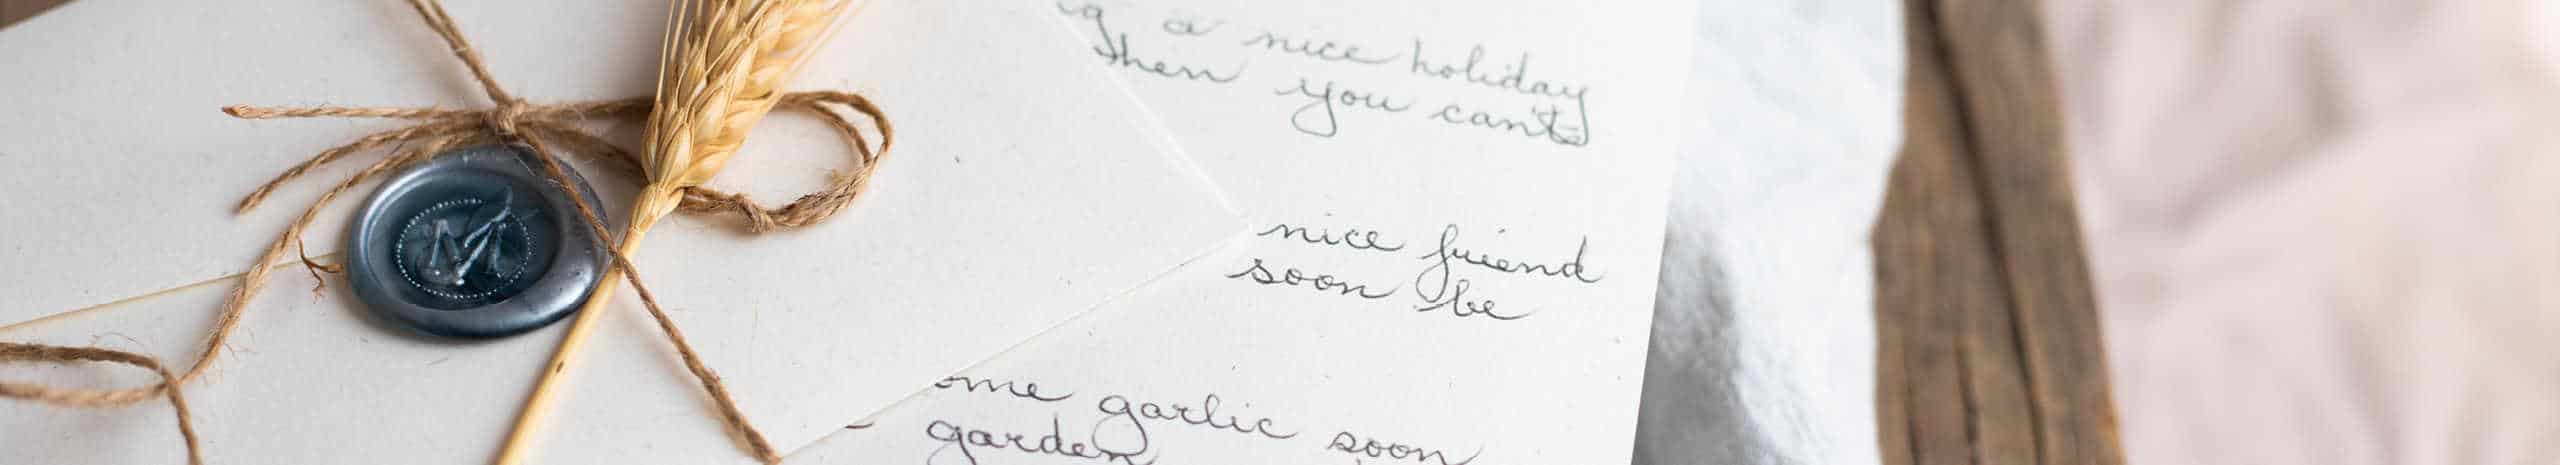 a nice holiday
then you can't
nice friend
soon be
ome garlic soon
garden
M